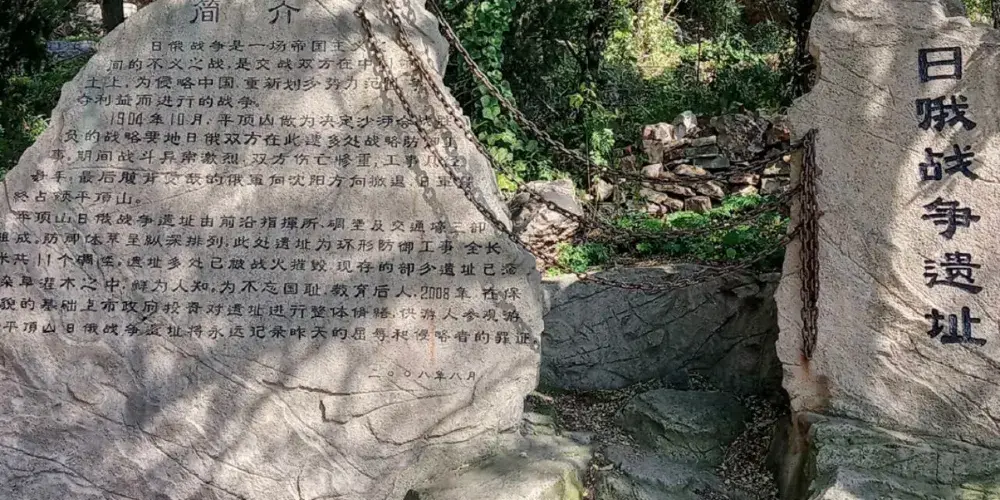 简介
日俄战争是一场帝国主义
间的不义之战,是交战双方在中
土上,为侵略中国,重新划分势力范
夺利益而进行的战争。
1904年10月,平顶山做为决定沙河会战胜
负的战略要地日俄双方在此遗多处战略防御
事,期间战斗异常激烈,双方伤亡惨重,工事几
易手;最后腹背受敌的俄军向沈阳方向撤退,日军
终占领平顶山。
平顶山日俄战争遗址由前沿指挥所、碉堡及交通壕三部
组成,防御体系呈纵深排列,此处遗址为环形防御工事,全长
米共11个碉堡,遗址多处已被战火摧毁,现存的部分遗址已
染草灌木之中,鲜为人知,为不忘国耻,教育后人,2008年,在保
貌的基础上市政府投资对遗址进行整体修缮,供游人参观游
平顶山日俄战争遗址将永远记录昨天的屈辱和侵略者的罪证。
二〇〇八年八月
日俄战争遗址